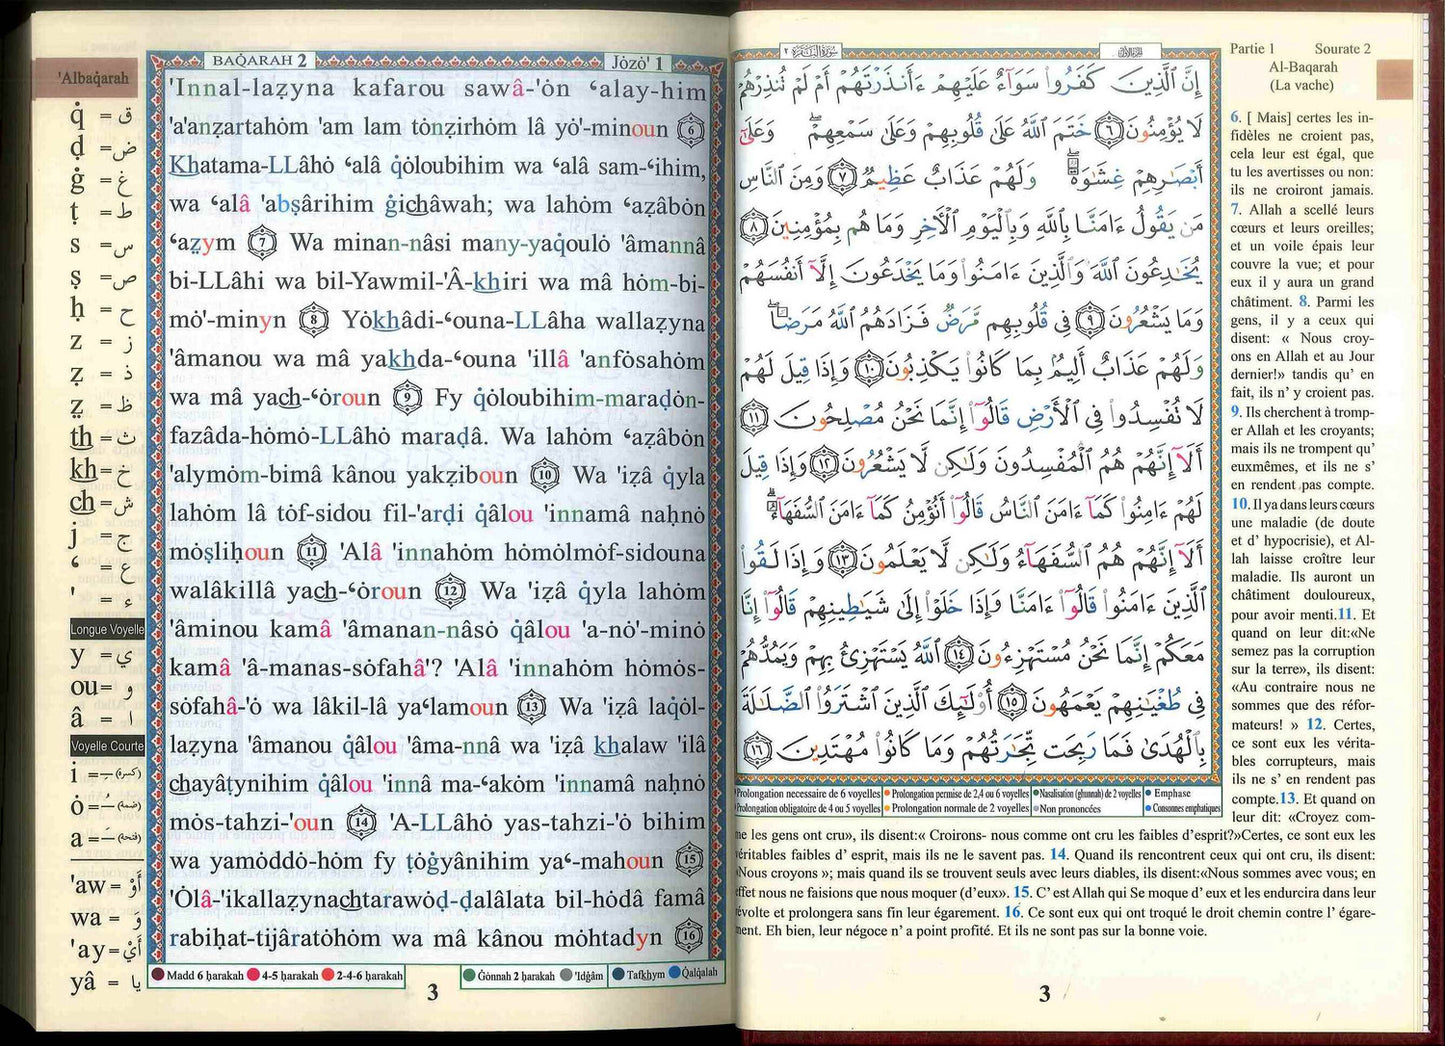 'Albaq̇arah
q̇ = ق
ḍ = ض
ġ = غ
ṭ = ط
s = س
ṣ = ص
ḥ = ح
z = ز
ẓ = ذ
ẓ̤ = ظ
th = ث
kh = خ
ch = ش
j = ج
ʿ = ع
' = ء
Longue Voyelle
y = ي
ou = و
â = ا
Voyelle Courte
i = ـِ (كسرة)
ȯ = ـُ (ضمة)
a = ـَ (فتحة)
'aw = أَوْ
wa = وَ
'ay = أَيْ
yâ = يا
BAQ̇ARAH 2
Jȯzȯ' 1
'Innal-laẓyna kafarou sawâ-'ȯn ʿalay-him
'a'anẓartahȯm 'am lam tȯnẓirhȯm lâ yȯ'-minoun 6
Khatama-LLâhȯ ʿalâ q̇ȯloubihim wa ʿalâ sam-ʿihim,
wa ʿalâ 'abṣârihim ġichâwah; wa lahȯm ʿaẓâbȯn
ʿaẓym 7 Wa minan-nâsi many-yaq̇oulȯ 'âmannâ
bi-LLâhi wa bil-Yawmil-'Â-khiri wa mâ hȯm-bi-
mȯ'-minyn 8 Yȯkhâdi-ʿouna-LLâha wallaẓyna
'âmanou wa mâ yakhda-ʿouna 'illâ 'anfȯsahȯm
wa mâ yach-ʿȯroun 9 Fy q̇ȯloubihim-maraḍȯn-
fazâda-hȯmȯ-LLâhȯ maraḍâ. Wa lahȯm ʿaẓâbȯn
'alymȯm-bimâ kânou yakẓiboun 10 Wa 'iẓâ q̇yla
lahȯm lâ tȯf-sidou fil-'arḍi q̇âlou 'innamâ naḥnȯ
mȯṣliḥoun 11 'Alâ 'innahȯm hȯmȯlmȯf-sidouna
walâkillâ yach-ʿȯroun 12 Wa 'iẓâ q̇yla lahȯm
'âminou kamâ 'âmanan-nâsȯ q̇âlou 'a-nȯ'-minȯ
kamâ 'â-manas-sȯfahâ'? 'Alâ 'innahȯm hȯmȯs-
sȯfahâ-'ȯ wa lâkil-lâ yaʿlamoun 13 Wa 'iẓâ laq̇ȯl-
laẓyna 'âmanou q̇âlou 'âma-nnâ wa 'iẓâ khalaw 'ilâ
chayâṭynihim q̇âlou 'innâ ma-ʿakȯm 'innamâ naḥnȯ
mȯs-tahzi-'oun 14 'A-LLâhȯ yas-tahzi-'ȯ bihim
wa yamȯddȯ-hȯm fy ṭȯġyânihim yaʿ-mahoun 15
'Ȯlâ-'ikallaẓynachtarawȯḍ-ḍalâlata bil-hȯdâ famâ
rabiḥat-tijâratȯhȯm wa mâ kânou mȯhtadyn 16
Madd 6 ḥarakah 4-5 ḥarakah 2-4-6 ḥarakah
Ġȯnnah 2 ḥarakah 'Idġâm
Tafkhym Q̇alq̇alah
3
سورة البقرة ٢
الجزء الأول
إِنَّ ٱلَّذِينَ كَفَرُوا۟ سَوَآءٌ عَلَيْهِمْ ءَأَنذَرْتَهُمْ أَمْ لَمْ تُنذِرْهُمْ
لَا يُؤْمِنُونَ ٦ خَتَمَ ٱللَّهُ عَلَىٰ قُلُوبِهِمْ وَعَلَىٰ سَمْعِهِمْ ۖ وَعَلَىٰٓ
أَبْصَـٰرِهِمْ غِشَـٰوَةٌ ۖ وَلَهُمْ عَذَابٌ عَظِيمٌ ٧ وَمِنَ ٱلنَّاسِ
مَن يَقُولُ ءَامَنَّا بِٱللَّهِ وَبِٱلْيَوْمِ ٱلْـَٔاخِرِ وَمَا هُم بِمُؤْمِنِينَ ٨
يُخَـٰدِعُونَ ٱللَّهَ وَٱلَّذِينَ ءَامَنُوا۟ وَمَا يَخْدَعُونَ إِلَّآ أَنفُسَهُمْ
وَمَا يَشْعُرُونَ ٩ فِى قُلُوبِهِم مَّرَضٌ فَزَادَهُمُ ٱللَّهُ مَرَضًا ۖ
وَلَهُمْ عَذَابٌ أَلِيمٌۢ بِمَا كَانُوا۟ يَكْذِبُونَ ١٠ وَإِذَا قِيلَ لَهُمْ
لَا تُفْسِدُوا۟ فِى ٱلْأَرْضِ قَالُوٓا۟ إِنَّمَا نَحْنُ مُصْلِحُونَ ١١
أَلَآ إِنَّهُمْ هُمُ ٱلْمُفْسِدُونَ وَلَـٰكِن لَّا يَشْعُرُونَ ١٢ وَإِذَا قِيلَ
لَهُمْ ءَامِنُوا۟ كَمَآ ءَامَنَ ٱلنَّاسُ قَالُوٓا۟ أَنُؤْمِنُ كَمَآ ءَامَنَ ٱلسُّفَهَآءُ ۗ
أَلَآ إِنَّهُمْ هُمُ ٱلسُّفَهَآءُ وَلَـٰكِن لَّا يَعْلَمُونَ ١٣ وَإِذَا لَقُوا۟
ٱلَّذِينَ ءَامَنُوا۟ قَالُوٓا۟ ءَامَنَّا وَإِذَا خَلَوْا۟ إِلَىٰ شَيَـٰطِينِهِمْ قَالُوٓا۟ إِنَّا
مَعَكُمْ إِنَّمَا نَحْنُ مُسْتَهْزِءُونَ ١٤ ٱللَّهُ يَسْتَهْزِئُ بِهِمْ وَيَمُدُّهُمْ
فِى طُغْيَـٰنِهِمْ يَعْمَهُونَ ١٥ أُو۟لَـٰٓئِكَ ٱلَّذِينَ ٱشْتَرَوُا۟ ٱلضَّلَـٰلَةَ
بِٱلْهُدَىٰ فَمَا رَبِحَت تِّجَـٰرَتُهُمْ وَمَا كَانُوا۟ مُهْتَدِينَ ١٦
Prolongation necessaire de 6 voyelles Prolongation permise de 2,4 ou 6 voyelles Nasalisation (ghunnah) de 2 voyelles Emphase
Prolongation obligatoire de 4 ou 5 voyelles Prolongation normale de 2 voyelles Non prononcées Consonnes emphatiques
Partie 1 Sourate 2
Al-Baqarah
(La vache)
6. [ Mais] certes les in-
fidèles ne croient pas,
cela leur est égal, que
tu les avertisses ou non:
ils ne croiront jamais.
7. Allah a scellé leurs
cœurs et leurs oreilles;
et un voile épais leur
couvre la vue; et pour
eux il y aura un grand
châtiment. 8. Parmi les
gens, il y a ceux qui
disent: « Nous croy-
ons en Allah et au Jour
dernier!» tandis qu' en
fait, ils n' y croient pas.
9. Ils cherchent à tromp-
er Allah et les croyants;
mais ils ne trompent qu'
euxmêmes, et ils ne s'
en rendent pas compte.
10. Il ya dans leurs cœurs
une maladie (de doute
et d' hypocrisie), et Al-
lah laisse croître leur
maladie. Ils auront un
châtiment douloureux,
pour avoir menti.11. Et
quand on leur dit:«Ne
semez pas la corruption
sur la terre», ils disent:
«Au contraire nous ne
sommes que des réfor-
mateurs! » 12. Certes,
ce sont eux les vérita-
bles corrupteurs, mais
ils ne s' en rendent pas
compte.13. Et quand on
leur dit: «Croyez com-
me les gens ont cru», ils disent:« Croirons- nous comme ont cru les faibles d'esprit?»Certes, ce sont eux les
véritables faibles d' esprit, mais ils ne le savent pas. 14. Quand ils rencontrent ceux qui ont cru, ils disent:
«Nous croyons »; mais quand ils se trouvent seuls avec leurs diables, ils disent:«Nous sommes avec vous; en
effet nous ne faisions que nous moquer (d'eux». 15. C' est Allah qui Se moque d' eux et les endurcira dans leur
révolte et prolongera sans fin leur égarement. 16. Ce sont eux qui ont troqué le droit chemin contre l' égare-
ment. Eh bien, leur négoce n' a point profité. Et ils ne sont pas sur la bonne voie.
3